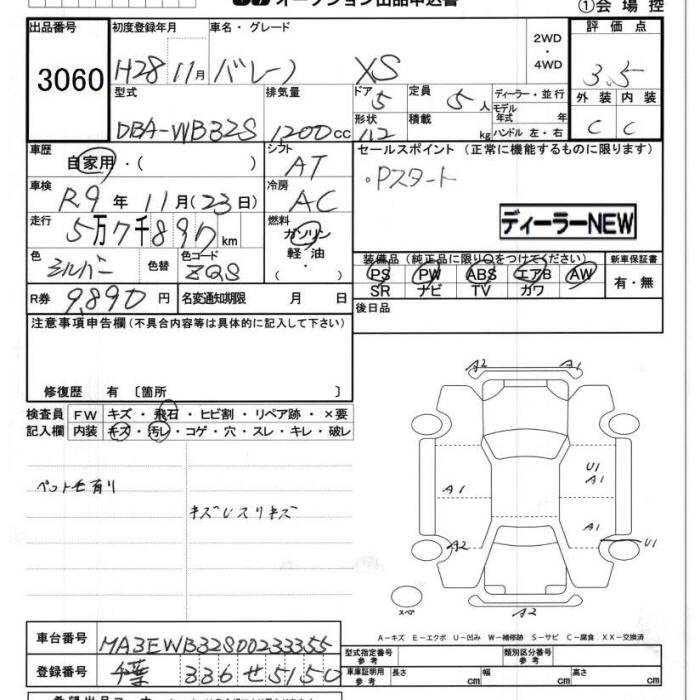 オークション出品申込書
①会場控
出品番号 3060
初度登録年月 H28 11月
車名・グレード バレーノ XS
2WD・4WD
評価点 3.5
外装 C 内装 C
型式 DBA-WB32S
排気量 1200cc
ドア 5 形状
定員 5人 積載 kg
ディーラー・並行
モデル年式 年
ハンドル 左・右
車歴 自家用・( )
シフト AT
セールスポイント (正常に機能するものに限ります)
・Pスタート
車検 R9年11月(23日)
冷房 AC
ディーラーNEW
走行 5万7千897km
燃料 ガソリン 軽油・
色 シルバー 色替 色コード ZQS
装備品 (純正品に限り○をつけてください) 新車保証書
PS PW ABS エアB AW 有・無
SR ナビ TV カワ
R券 9,890円 名変通知期限 月 日
後日品
注意事項申告欄 (不具合内容等は具体的に記入して下さい)
修復歴 有 〔箇所 〕
検査員 FW キズ・飛石・ヒビ割・リペア跡・×要
記入欄 内装 キズ・汚レ・コゲ・穴・スレ・キレ・破レ
ペット毛有り
キズUスリキズ
A2 A1
U1
A1
A1
A1
A2
U1
スペア
A2
A-キズ E-エクボ U-凹み W-補修跡 S-サビ C-腐食 XX-交換済
車台番号 MA3EWB32S00233355
型式指定番号 参考 類別区分番号 参考
登録番号 千葉 336 せ 5150
車庫証明用 参考 長さ cm 幅 cm 高さ cm